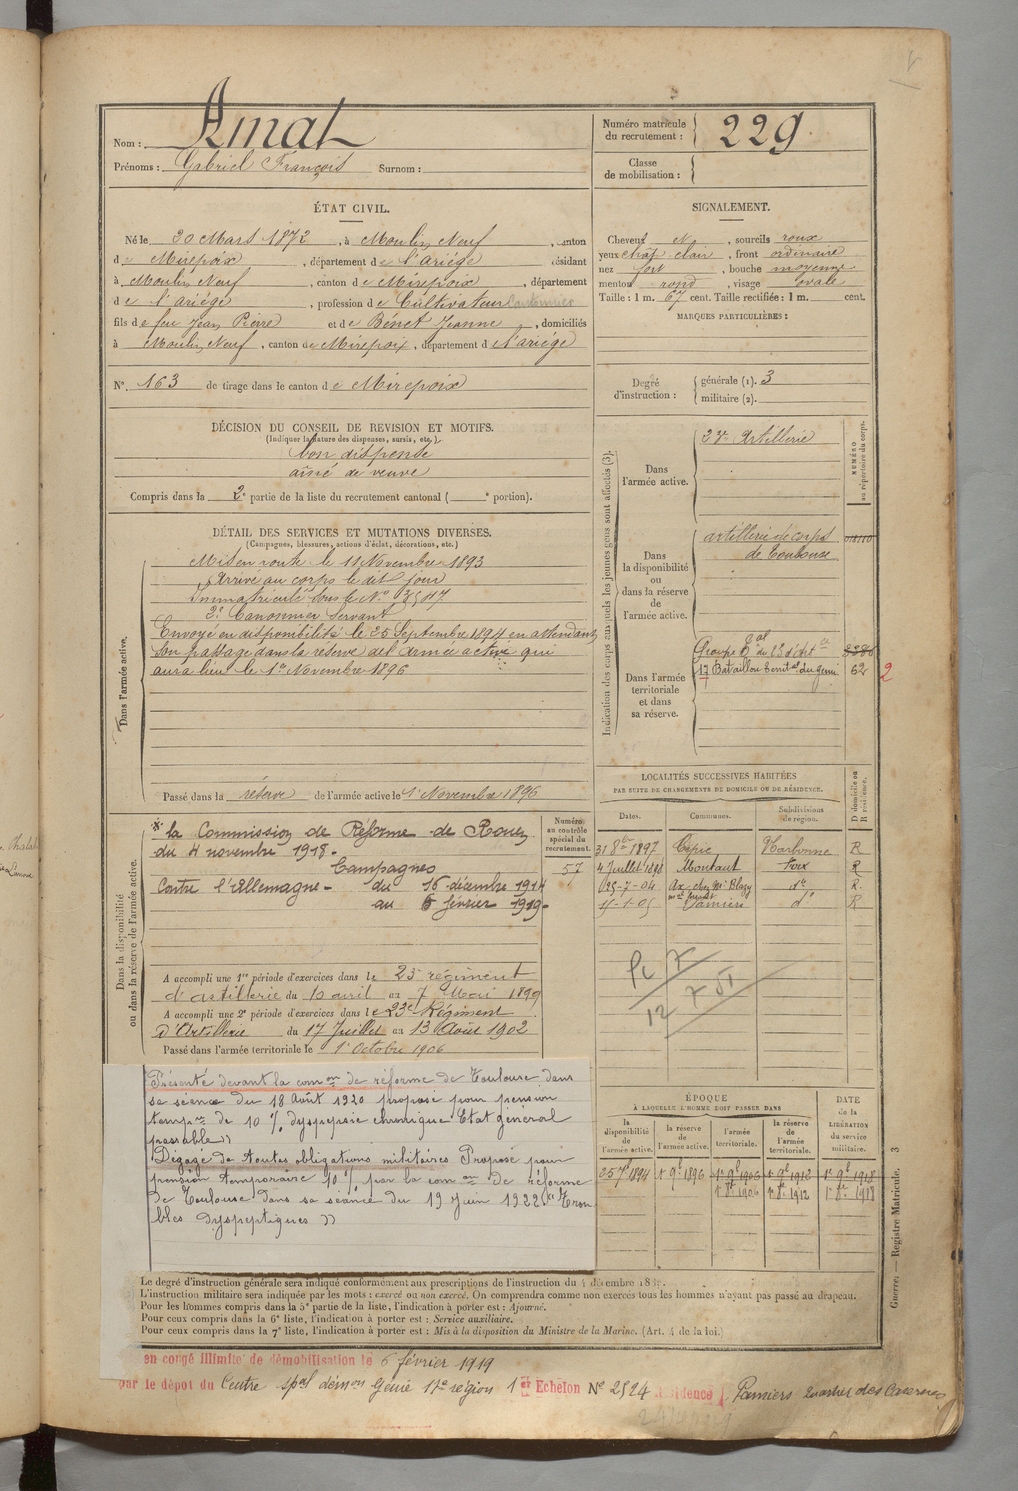 Nom : Amat
Prénoms : Gabriel François Surnom :
Numéro matricule du recrutement : 229
Classe de mobilisation :
ÉTAT CIVIL.
Né le 20 Mars 1872, à Moulin Neuf, canton
de Mirepoix, département de l'Ariége, résidant
à Moulin Neuf, canton de Mirepoix, département
de l'ariége, profession de Cultivateur
fils de feu Jean Pierre et de Bénet Jeanne, domiciliés
à Moulin Neuf, canton de Mirepoix, département de l'ariége
N°. 163 de tirage dans le canton de Mirepoix
SIGNALEMENT.
Cheveux N, sourcils roux
yeux chât clair, front ordinaire
nez fort, bouche moyenne
menton rond, visage ovale
Taille : 1 m. 67 cent. Taille rectifiée : 1 m. cent.
MARQUES PARTICULIÈRES :
Degré d'instruction : générale (1). 3
militaire (2).
DÉCISION DU CONSEIL DE REVISION ET MOTIFS.
(Indiquer la nature des dispenses, sursis, etc.)
bon dispensé
aîné de veuve
Compris dans la 2e partie de la liste du recrutement cantonal ( e portion).
DÉTAIL DES SERVICES ET MUTATIONS DIVERSES.
(Campagnes, blessures, actions d'éclat, décorations, etc.)
Dans l'armée active.
Mis en route le 11 Novembre 1893
Arrivé au corps le dit jour
Immatriculé sous le No
2e Canonnier Servant
Envoyé en disponibilité le 25 Septembre 1894 en attendant
son passage dans la réserve de l'armée active qui
aura lieu le 1er Novembre 1896
Passé dans la réserve de l'armée active le 1 Novembre 1896
Indication des corps auxquels les jeunes gens sont affectés (3).
NUMÉRO au répertoire du corps.
Dans l'armée active.
Artillerie
Dans la disponibilité ou dans la réserve de l'armée active.
artillerie de corps
de Toulouse
Dans l'armée territoriale et dans sa réserve.
Groupe
17 Bataillon Territal du génie 62
2
LOCALITÉS SUCCESSIVES HABITÉES
PAR SUITE DE CHANGEMENTS DE DOMICILE OU DE RÉSIDENCE.
Dates. Communes. Subdivisions de région. D domicile ou R résidence.
31 8bre 1897 Narbonne R
4 Juillet 1898 Montaut Foix R
25-7-04 Ax chez Mr Blazy do R.
4-1-05 Pamiers do R
Dans la disponibilité ou dans la réserve de l'armée active.
Numéro au contrôle spécial du recrutement.
57
la Commission de Réforme de Rouen
du 4 novembre 1918-
Campagnes
Contre l'Allemagne- du 16 décembre 1914
au 6 février 1919-
A accompli une 1re période d'exercices dans le 23e régiment
d'artillerie du 10 avril au 7 Mai 1899
A accompli une 2e période d'exercices dans le 23e Régiment
D'Artillerie du 17 Juillet au 13 Août 1902
Passé dans l'armée territoriale le 1er Octobre 1906
Présenté devant la comon de réforme de Toulouse dans
sa séance du 18 Août 1920 proposé pour pension
tempre de 10 % dyspepsie chronique Etat général
passable"
Dégagé de toutes obligations militaires Proposé pour
pension temporaire 10 % par la comon De réforme
De Toulouse dans sa séance du 19 Juin 1922 Trou
bles dyspeptiques"
ÉPOQUE
À LAQUELLE L'HOMME DOIT PASSER DANS
la disponibilité de l'armée active. la réserve de l'armée active. l'armée territoriale. la réserve de l'armée territoriale. DATE de la LIBÉRATION du service militaire.
25 7bre 1894 1er 9bre 1896 1er 9bre 1906 1er 9bre 1912 1er 9bre 1918
1er 8bre 1906 1er 8bre 1912 1er 8bre 1918
Guerre. — Registre Matricule. 3
Le degré d'instruction générale sera indiqué conformément aux prescriptions de l'instruction du 4 décembre
L'instruction militaire sera indiquée par les mots : exercé ou non exercé. On comprendra comme non exercés tous les hommes n'ayant pas passé au drapeau.
Pour les hommes compris dans la 5e partie de la liste, l'indication à porter est : Ajourné.
Pour ceux compris dans la 6e liste, l'indication à porter est : Service auxiliaire.
Pour ceux compris dans la 7e liste, l'indication à porter est : Mis à la disposition du Ministre de la Marine. (Art. 4 de la loi.)
en congé illimité de démobilisation le 6 février 1919
par le dépôt du Centre spal démon Génie 17e région 1er Echelon No 2524 Résidence Pamiers quartier des Casernes